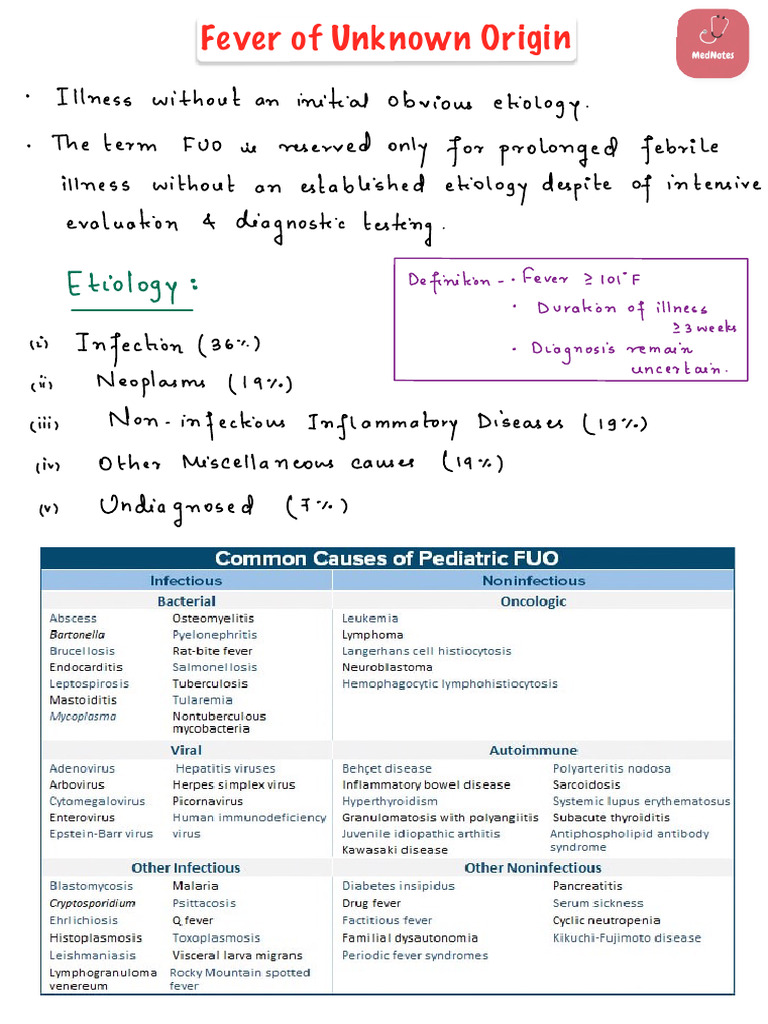 Fever of Unknown Origin
MedNotes
· Illness without an initial obvious etiology.
· The term FUO is reserved only for prolonged febrile
illness without an established etiology despite of intensive
evaluation & diagnostic testing.
Etiology :
Definition - · Fever ≥ 101°F
· Duration of illness
≥ 3 weeks
· Diagnosis remain
uncertain.
(i) Infection (36%)
(ii) Neoplasms (19%)
(iii) Non-infectious Inflammatory Diseases (19%)
(iv) Other Miscellaneous causes (19%)
(v) Undiagnosed (7%)
Common Causes of Pediatric FUO
Infectious Noninfectious
Bacterial Oncologic
Abscess Osteomyelitis Leukemia
Bartonella Pyelonephritis Lymphoma
Brucellosis Rat-bite fever Langerhans cell histiocytosis
Endocarditis Salmonellosis Neuroblastoma
Leptospirosis Tuberculosis Hemophagocytic lymphohistiocytosis
Mastoiditis Tularemia
Mycoplasma Nontuberculous
mycobacteria
Viral Autoimmune
Adenovirus Hepatitis viruses Behçet disease Polyarteritis nodosa
Arbovirus Herpes simplex virus Inflammatory bowel disease Sarcoidosis
Cytomegalovirus Picornavirus Hyperthyroidism Systemic lupus erythematosus
Enterovirus Human immunodeficiency Granulomatosis with polyangiitis Subacute thyroiditis
Epstein-Barr virus virus Juvenile idiopathic arthitis Antiphospholipid antibody
Kawasaki disease syndrome
Other Infectious Other Noninfectious
Blastomycosis Malaria Diabetes insipidus Pancreatitis
Cryptosporidium Psittacosis Drug fever Serum sickness
Ehrlichiosis Q fever Factitious fever Cyclic neutropenia
Histoplasmosis Toxoplasmosis Familial dysautonomia Kikuchi-Fujimoto disease
Leishmaniasis Visceral larva migrans Periodic fever syndromes
Lymphogranuloma Rocky Mountain spotted
venereum fever